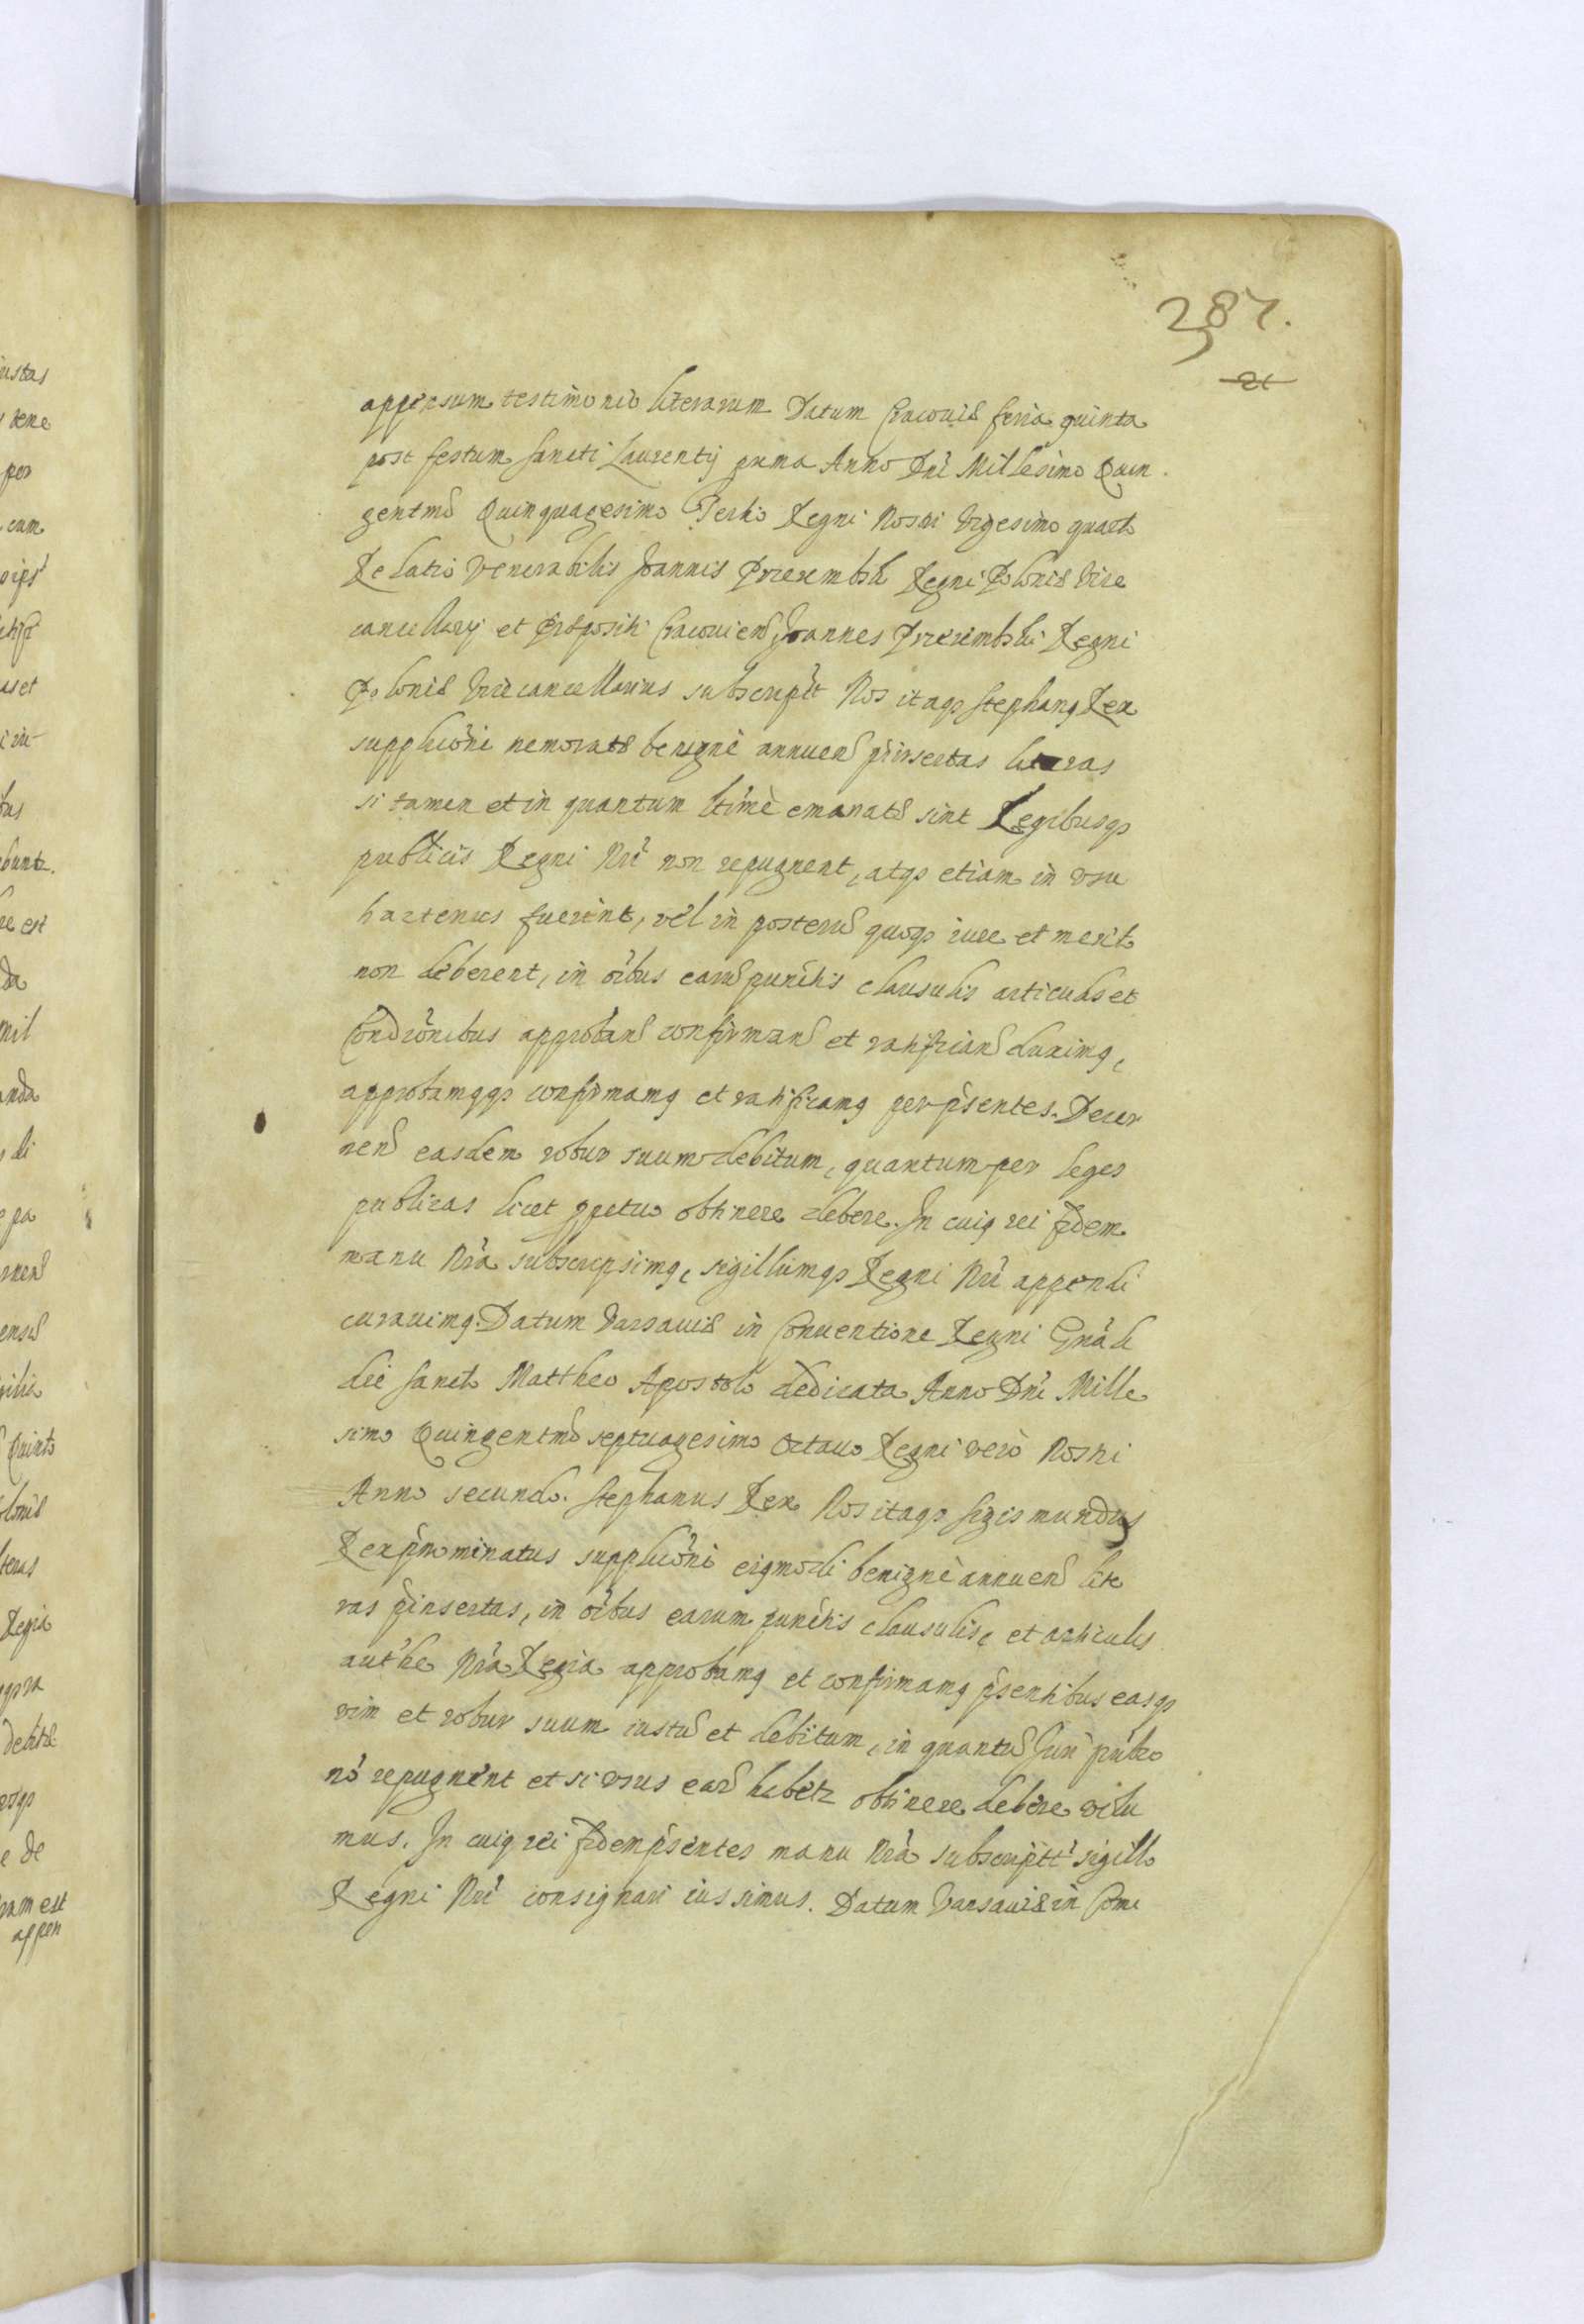 287.
21
appensum testimonio literarum Datum Cracouiæ feria quinta
post festum Sancti Laurentij prima Anno Dni Millesimo Quin
gentmo Quinquagesimo Tertio Regni Nostri Vigesimo quarto
Relatio Venerabilis Joannis Przerembski Regni Poloniæ Vice
cancellarij et Præpositi Cracouien Joannes Przerembski Regni
Poloniæ Vicecancellarius subscripsit Nos itaqz Stephanq Rex
supplicõni memoratæ benignè annuen p̃insertas literas
si tamen et in quantum ltimè emanatæ sint Legibusqz
publicis Regni Nri non repugnent, atqz etiam in vsu
hactenus fuerint, vel in posterũ quoqz iure et merito
non deberent, in oĩbus earũ punctis clausulis articulis et
Condiõnibus approban confirman et ratifican duximq,
approbamqqz confirmamq et ratificamq per p̃sentes. Decer
nen easdem robur suum debitum, quantum per leges
publicas licet ppetuo obtinere debere. In cuiq rei fidem
manu Nrã subscripsimq, sigillumqz Regni Nri appendi
curauimq. Datum Varsauiæ in Conuentione Regni Gnãli
die Sancto Mattheo Apostolo dedicata Anno Dni Mille
simo Quingentmo septuagesimo Octauo Regni verò Nostri
Anno secundo. Stephanus Rex Nos itaqz Sigismundus
Rex p̃nominatus supplicõni eiqmodi benignè annuen lite
ras p̃insertas, in oĩbus earum punctis clausulis, et articulis
authe Nrã Regia approbamq et confirmamq p̃sentibus easqz
vim et robur suum iustũ et debitum, in quantũ Juri publco
nõ repugnent et si vsus earũ habetr obtinere debere volu
mus. In cuiq rei fidem p̃sentes manu Nrã subscriptt sigillo
Regni Nri consignari iussimus. Datum Varsauiæ in Comi